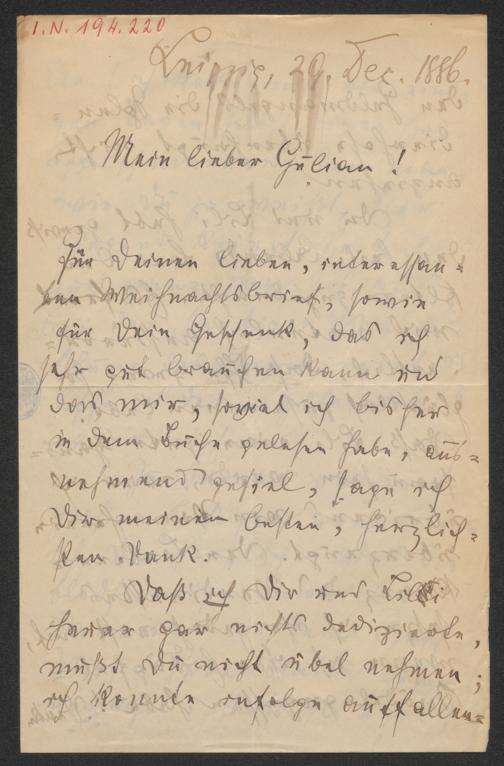 I.N. 194.220
Leipzig, 29. Dec. 1886.
Mein lieber Gulian!
Für Deinen lieben, interessan=
ten Weihnachtsbrief, sowie
für Dein Geschenk, das ich
sehr gut brauchen kann und
das mir, soviel ich bisher
in dem Buche gelesen habe, aus=
nehmend gefiel, sage ich
Dir meinen besten, herzlich=
sten Dank.
Daß ich Dir und Lilli
heuer gar nichts dedizierte,
mußt Du nicht übel nehmen;
ich konnte infolge auffallen=